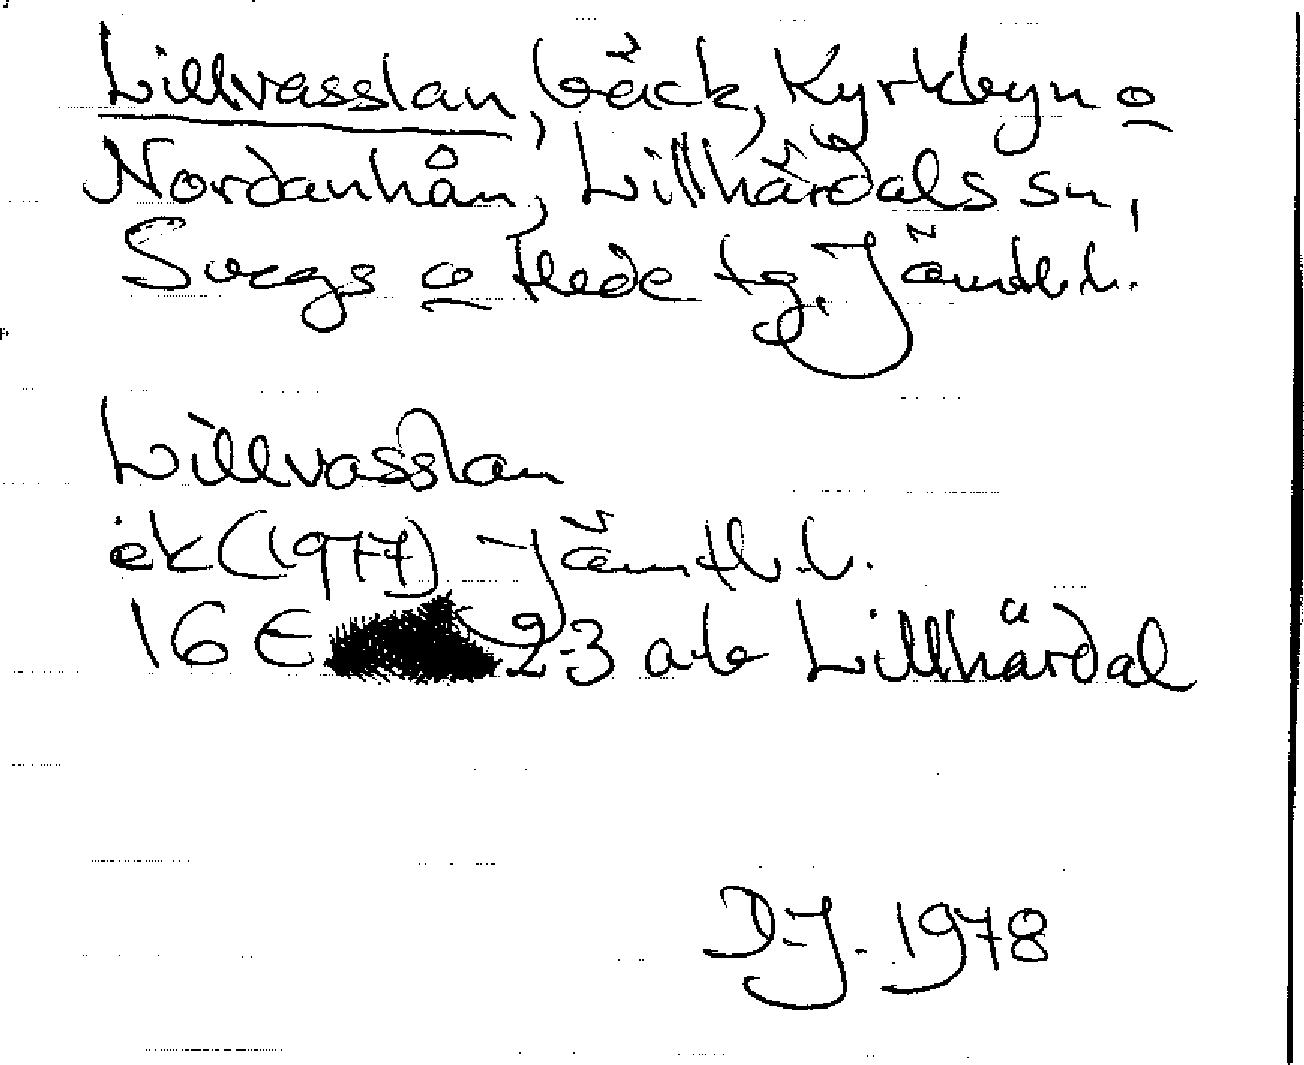 Lillvasslan, bäck, Kyrkbyn o
Nordanhån, Lillhärdals sn,
Svegs o Hede tg, Jämtl.l.
Lillvasslan
ek (1977) Jämtl.l.
16 E 2-3 a-b Lillhärdal
D-J. 1978